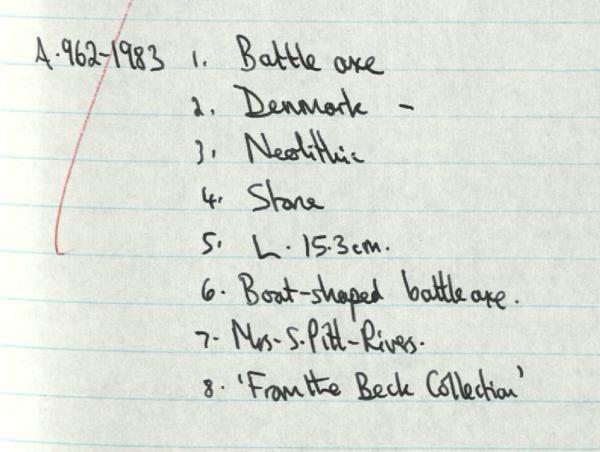 A.962-1983 1. Battle axe
2. Denmark -
3. Neolithic
4. Stone
5. L. 15.3cm.
6. Boat-shaped battle axe.
7. Mrs. S. Pitt-Rivers.
8. 'From the Beck Collection'